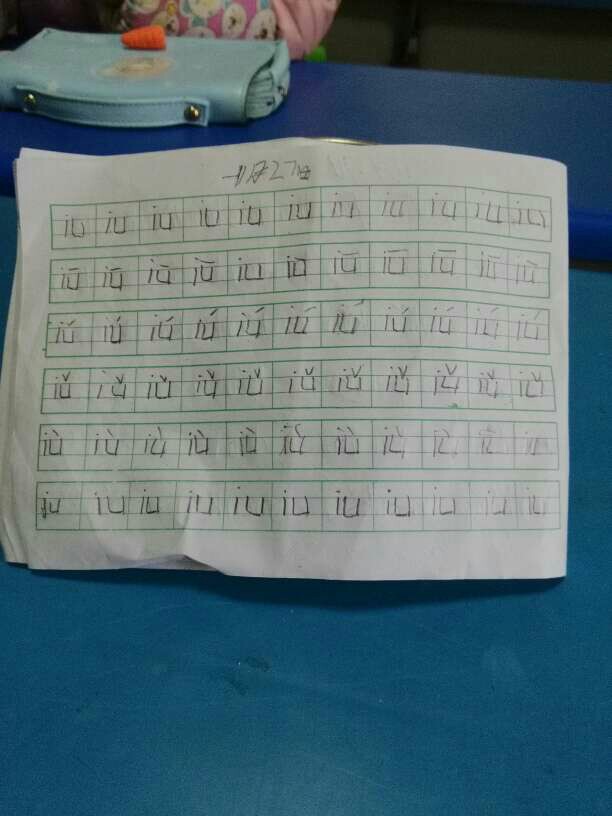 iu iu iu iu iu iu iu iu iu iu iu
iū iū iū iū iu iū iū iū iū iū iū
iú iú iú iú iú iú iú iú iú iú iú
iǔ iǔ iǔ iǔ iǔ iǔ iǔ iǔ iǔ iǔ iǔ
iù iù iù iù iù iù iù iù iù iù iù
iu iu iu iu iu iu iu iu iu iu iu